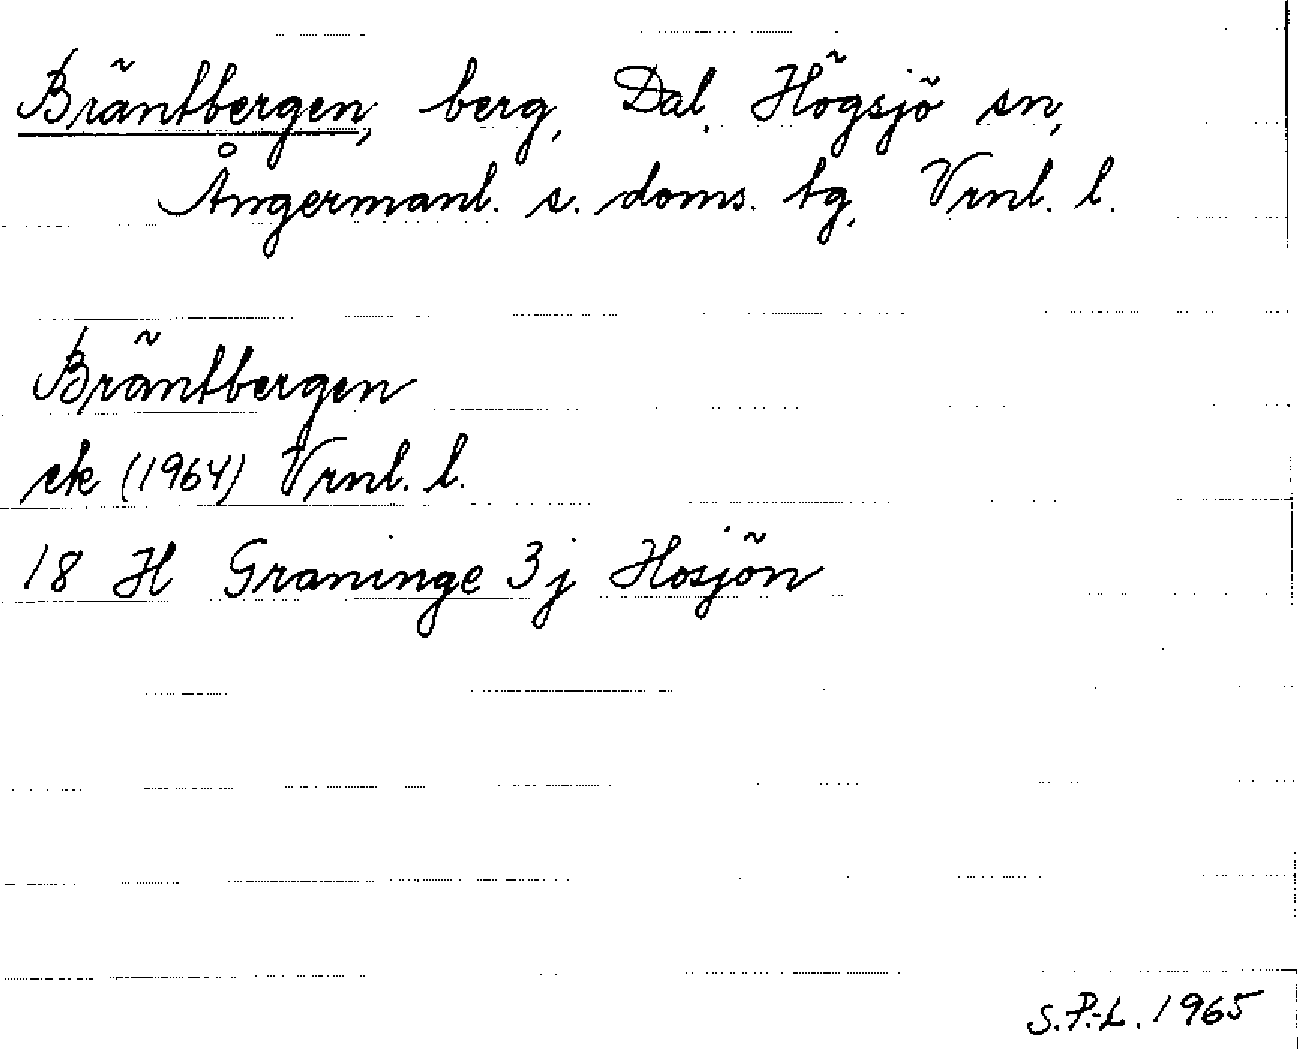 Bräntbergen, berg, Dal, Högsjö sn,
Ångermanl. s. doms. tg, Vrnl. l.
Bräntbergen
ek (1964) Vrnl. l.
18 H Graninge 3j Hosjön
S.P.-L. 1965